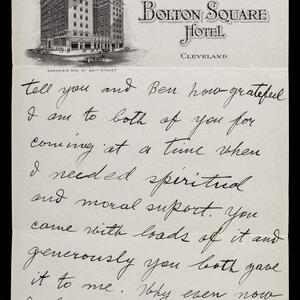 BOLTON SQUARE
HOTEL
CLEVELAND
CARNEGIE AVE. AT 89TH STREET
tell you and Ben how grateful
I am to both of you for
coming at a time when
I needed spiritual
and moral support. You
came with loads of it and
generously you both gave
it to me. Why even now